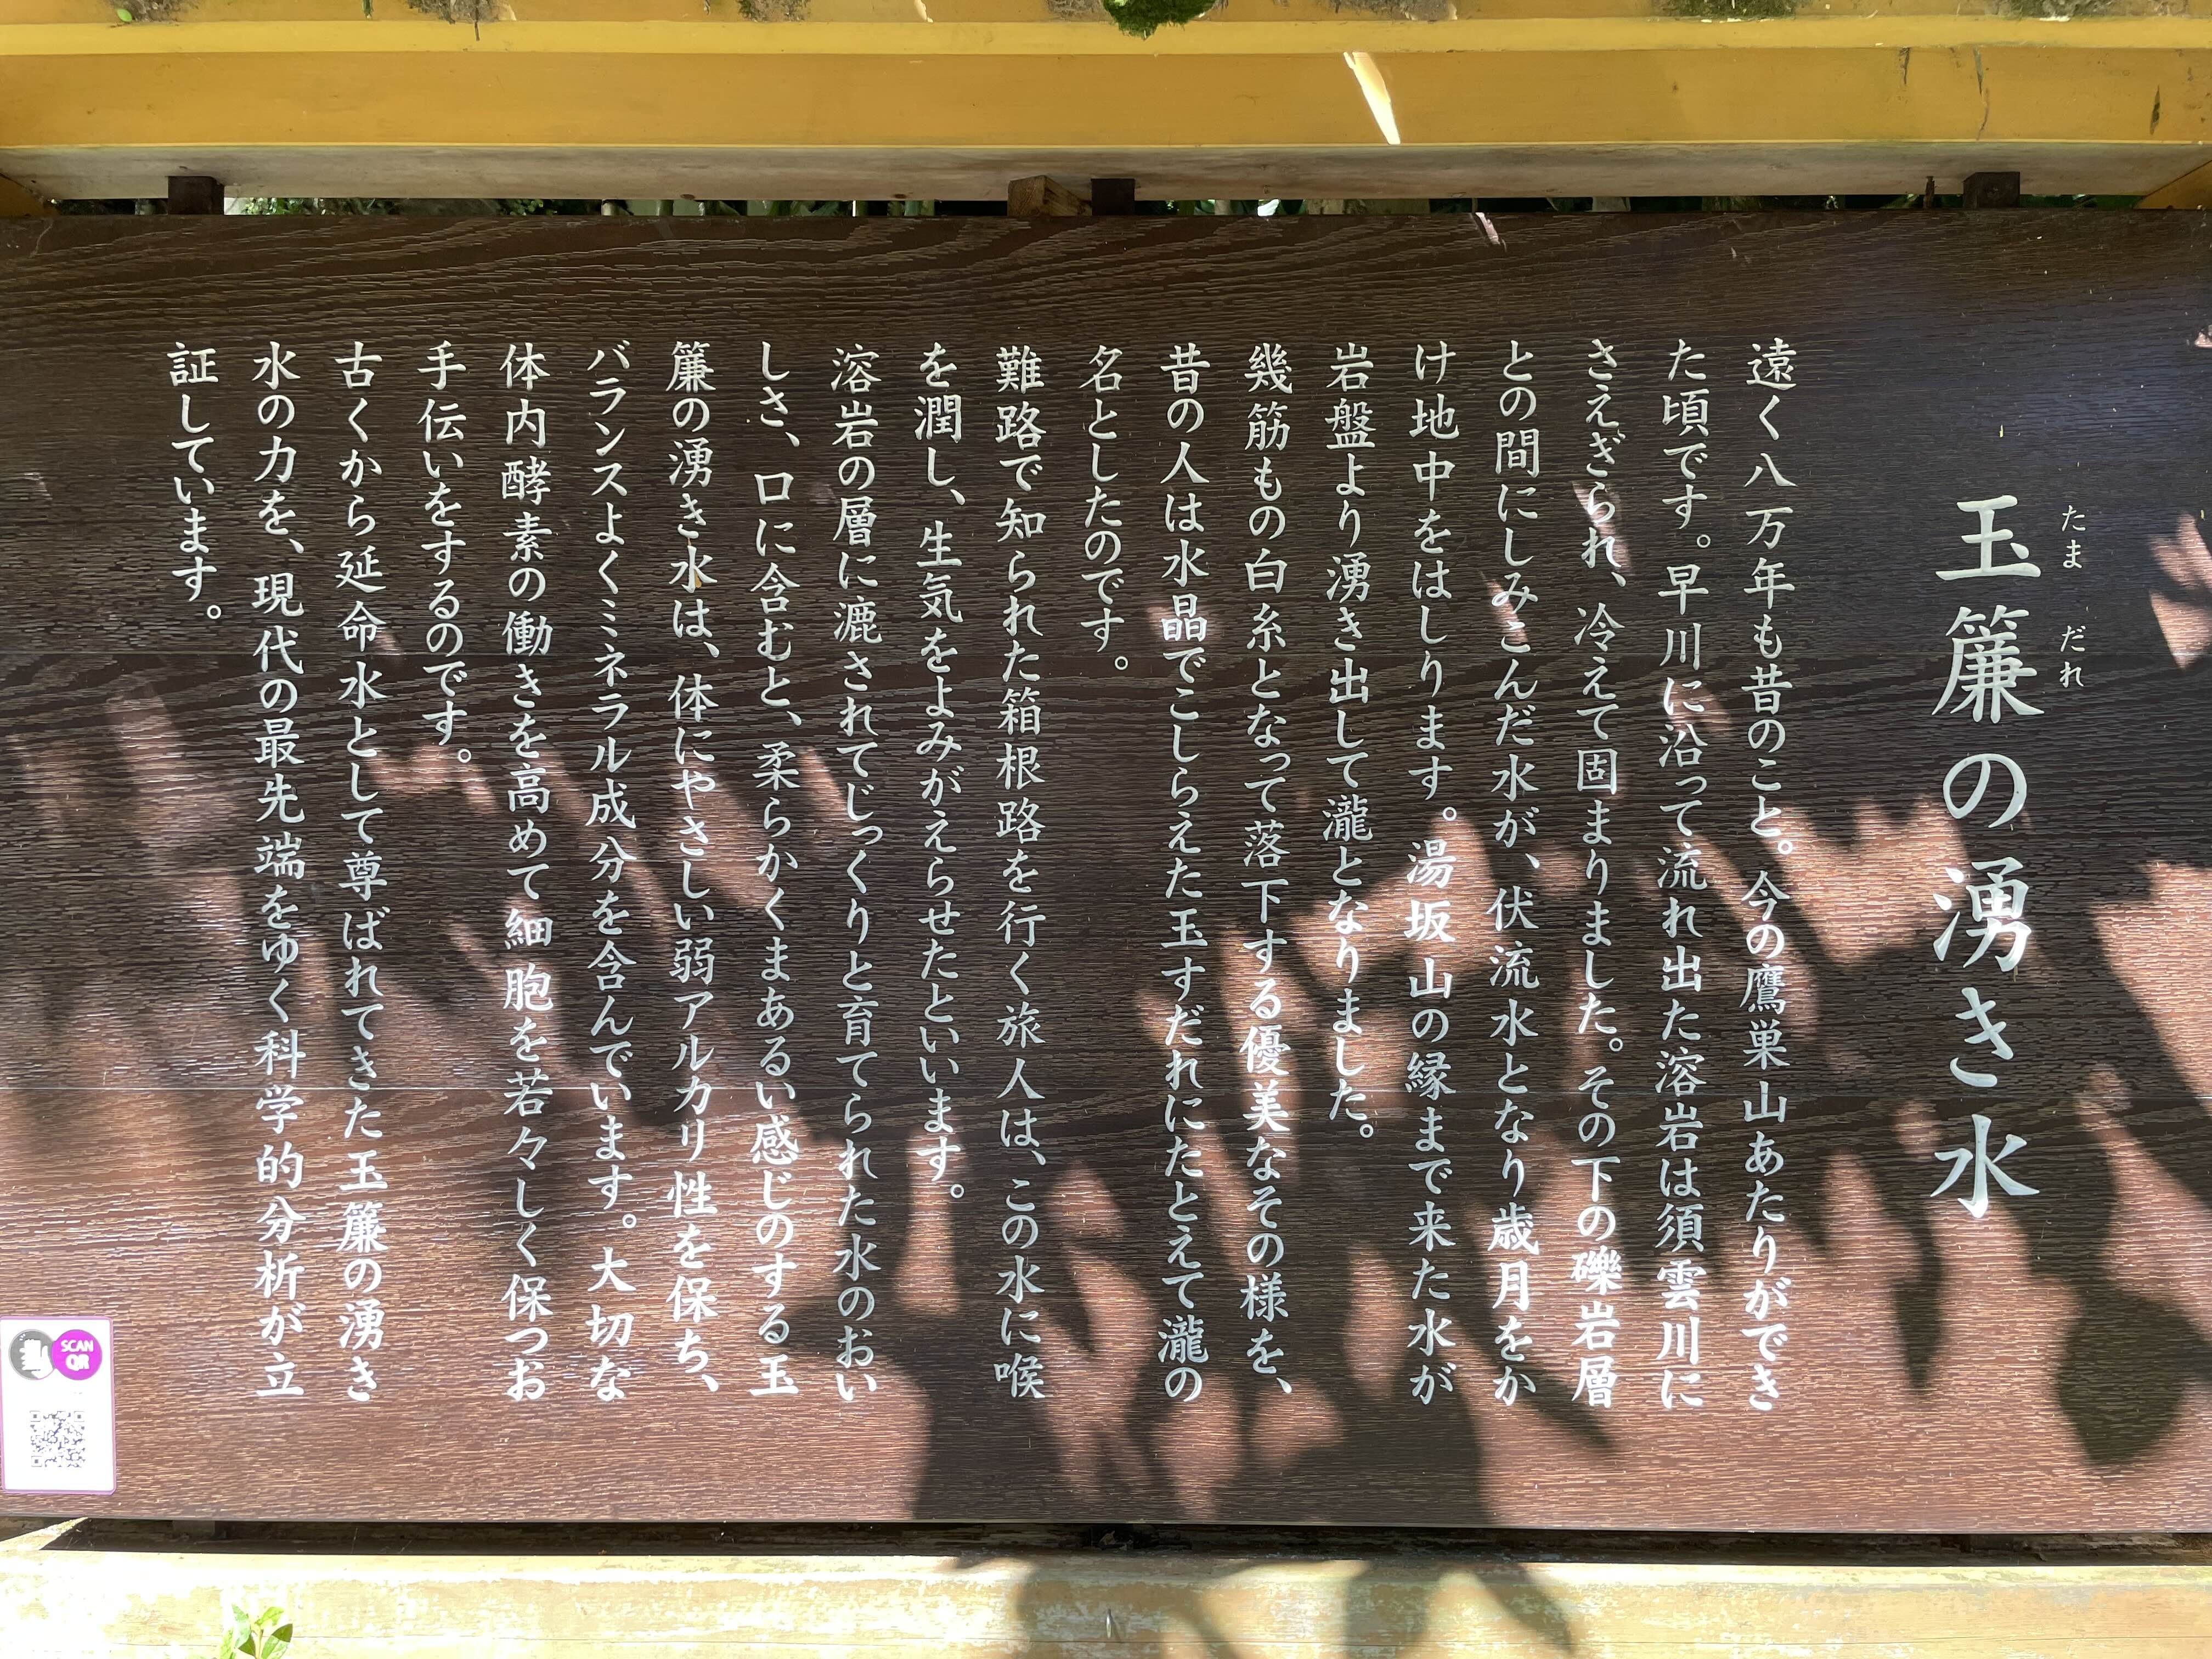 玉簾の湧き水
たま だれ
遠く八万年も昔のこと。今の鷹巣山あたりができ
た頃です。早川に沿って流れ出た溶岩は須雲川に
さえぎられ、冷えて固まりました。その下の礫岩層
との間にしみこんだ水が、伏流水となり歳月をか
け地中をはしります。湯坂山の縁まで来た水が
岩盤より湧き出して瀧となりました。
幾筋もの白糸となって落下する優美なその様を、
昔の人は水晶でこしらえた玉すだれにたとえて瀧の
名としたのです。
難路で知られた箱根路を行く旅人は、この水に喉
を潤し、生気をよみがえらせたといいます。
溶岩の層に漉されてじっくりと育てられた水のおい
しさ、口に含むと、柔らかくまあるい感じのする玉
簾の湧き水は、体にやさしい弱アルカリ性を保ち、
バランスよくミネラル成分を含んでいます。大切な
体内酵素の働きを高めて細胞を若々しく保つお
手伝いをするのです。
古くから延命水として尊ばれてきた玉簾の湧き
水の力を、現代の最先端をゆく科学的分析が立
証しています。
SCAN
QR